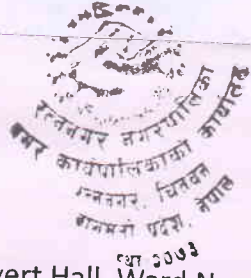 रत्ननगर नगरपालिका
नगर कार्यपालिकाको कार्यालय
रत्ननगर, चितवन
बागमती प्रदेश, नेपाल
vert Hall, Ward N